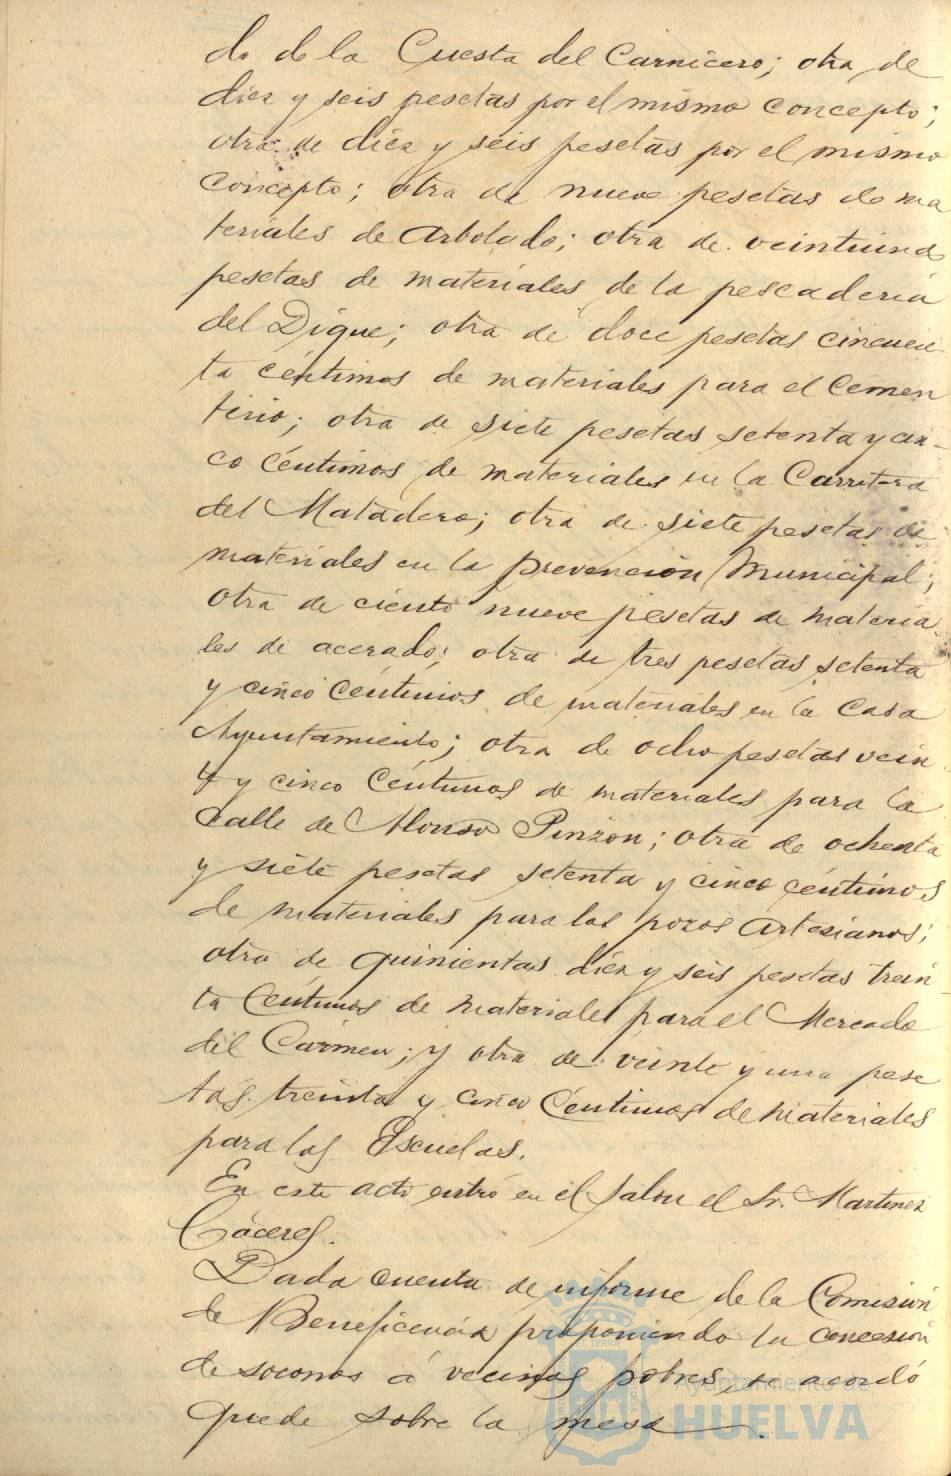 do de la Cuesta del Carnicero; otra de
diez y seis pesetas por el mismo concepto;
otra de diez y seis pesetas por el mismo
concepto; otra de nueve pesetas de ma
teriales de Arbolado; otra de veintiuna
pesetas de materiales de la pescaderia
del Dique; otra de doce pesetas cincuen
ta céntimos de materiales para el Cemen
terio; otra de siete pesetas setenta y cin-
co céntimos de materiales en la Carretera
del Matadero; otra de siete pesetas de
materiales en la prevencion Municipal;
otra de ciento nueve pesetas de materia
les de acerado; otra de tres pesetas setenta
y cinco céntimos de materiales en la Casa
Ayuntamiento; otra de ocho pesetas vein
te y cinco céntimos de materiales para la
Calle de Alonso Pinzon; otra de ochenta
y siete pesetas setenta y cinco céntimos
de materiales para los pozos Artesianos;
otra de quinientas diez y seis pesetas trein
ta céntimos de materiales para el Mercado
del Cármen; y otra de veinte y una pese
tas treinta y cinco céntimos de materiales
para las Escuelas.
En este acto entró en el Salon el Sr. Martinez
Cáceres.
Dada cuenta de informe de la Comisión
de Beneficencia proponiendo la concesión
de socorros á vecinos pobres, se acordó
quede sobre la mesa.
Ayuntamiento de
HUELVA